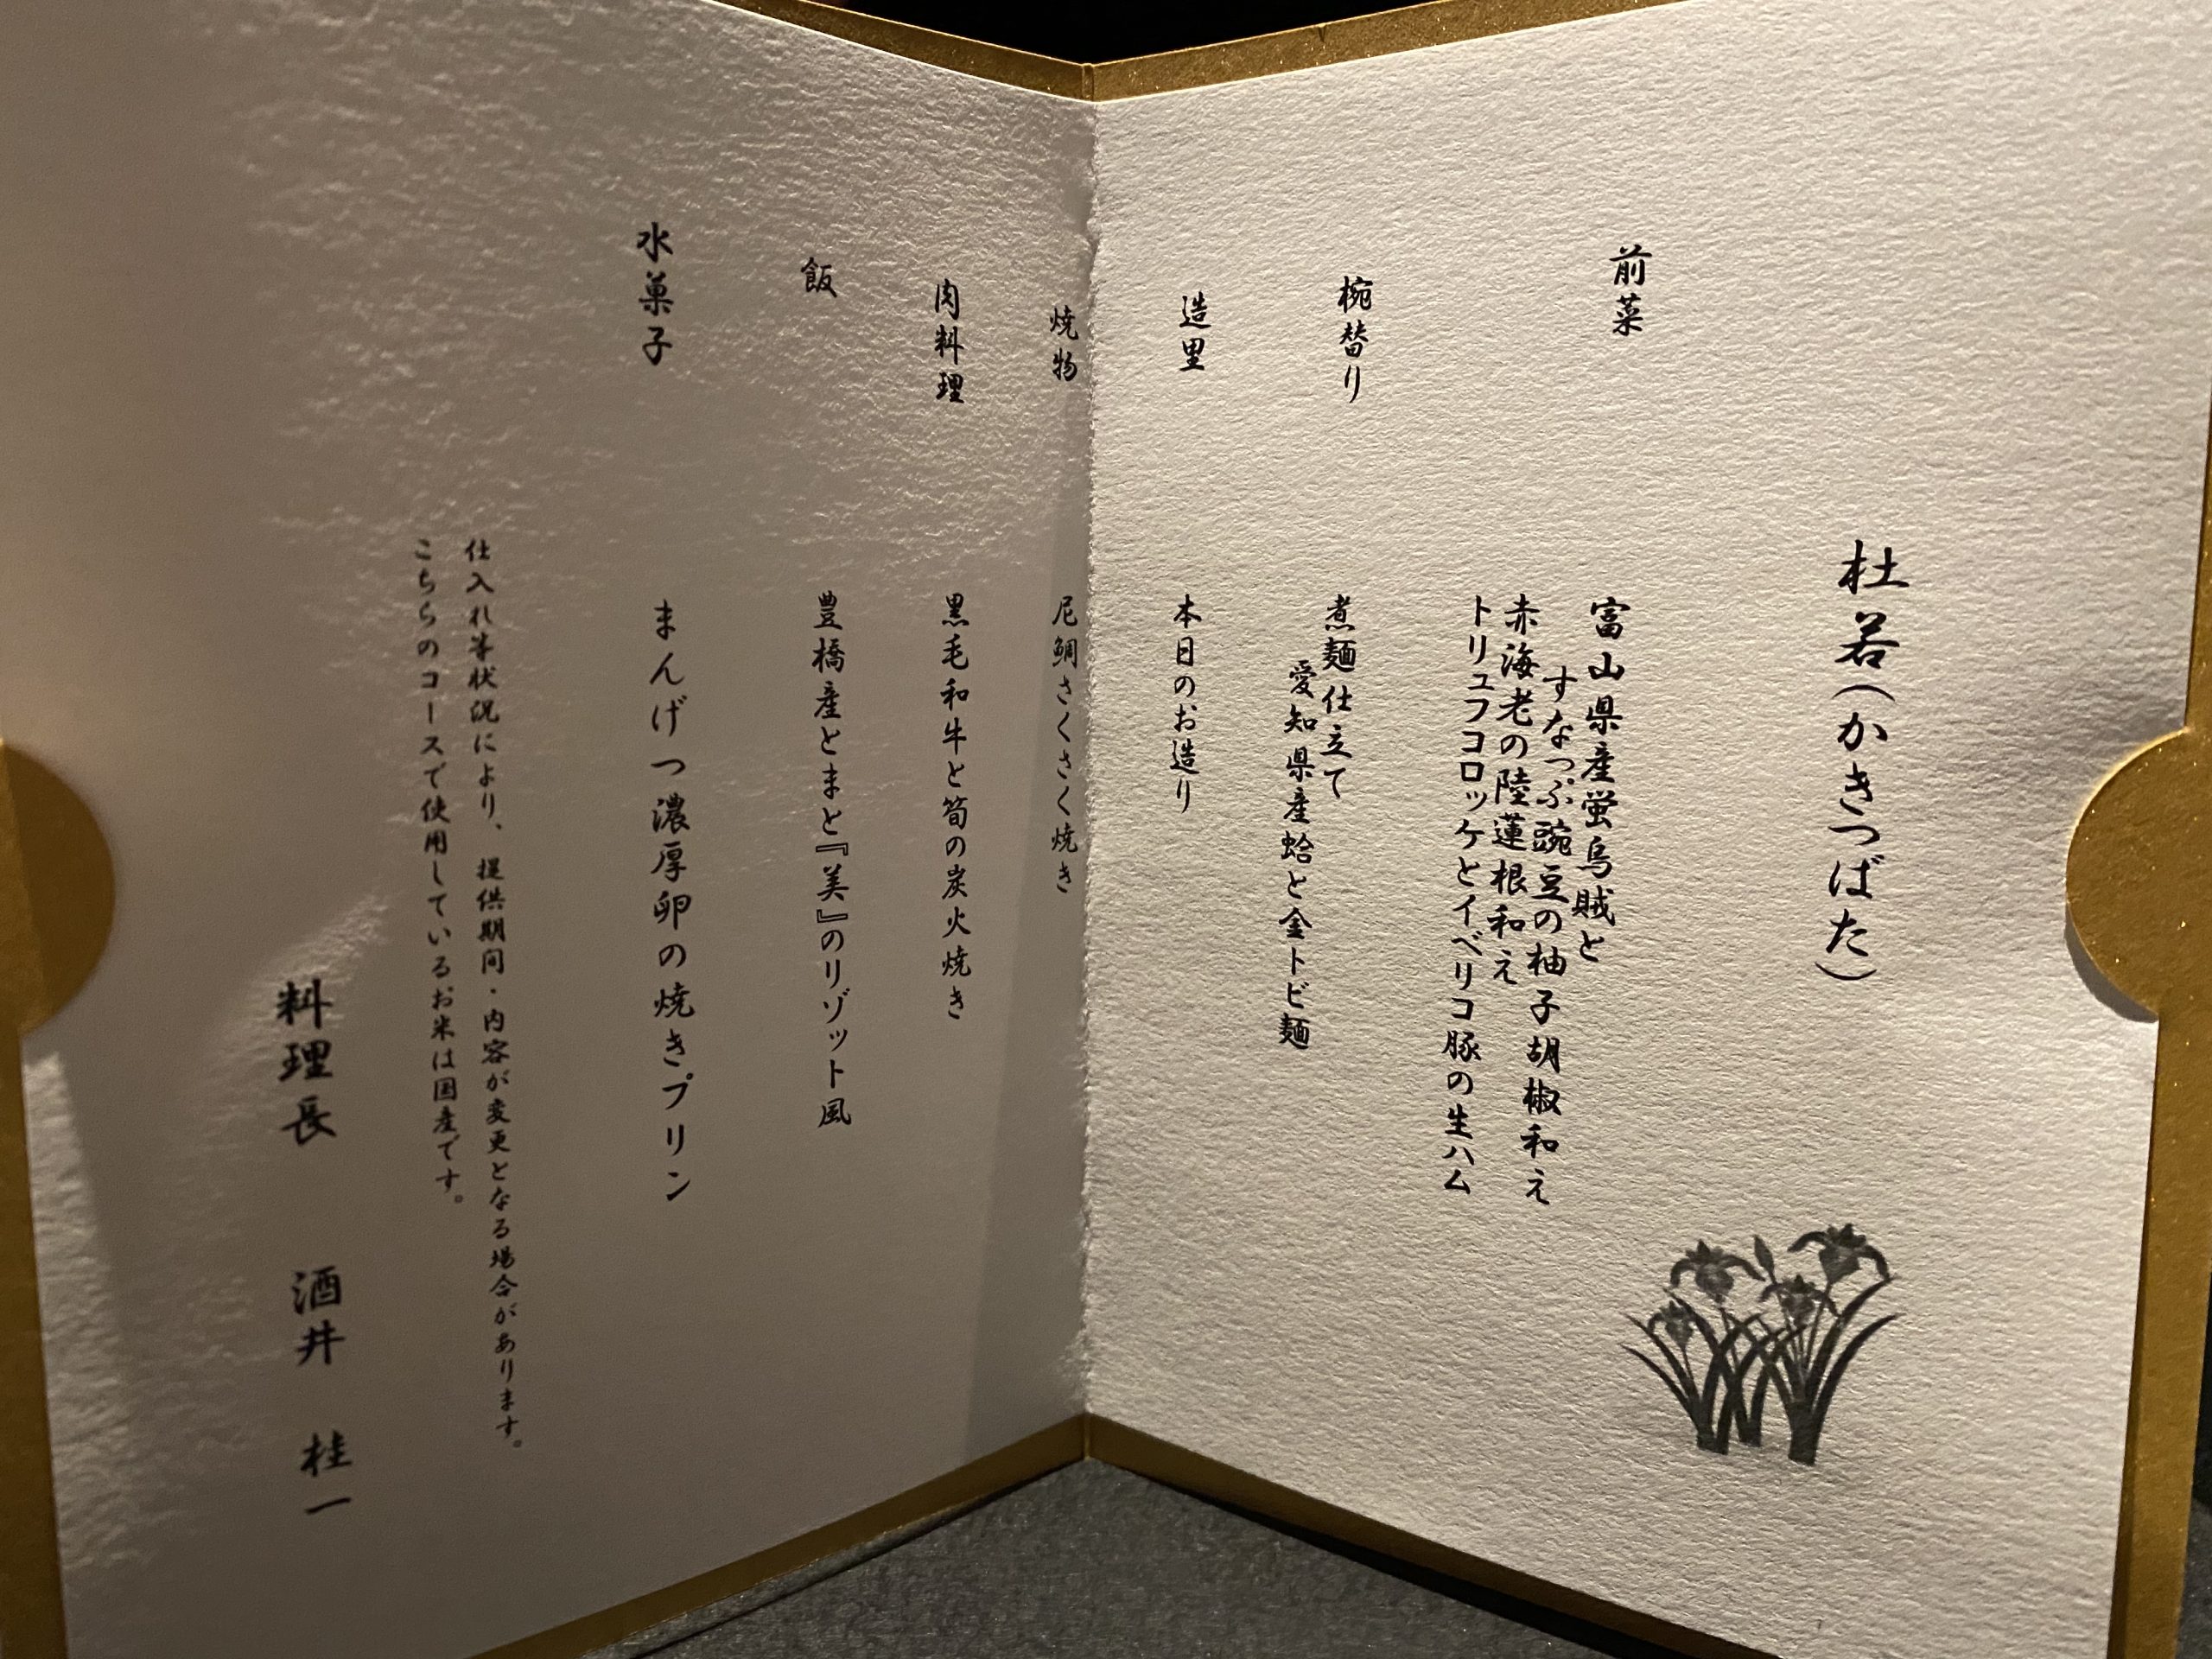 杜若(かきつばた)
前菜
富山県産蛍烏賊と
すなっぷ豌豆の柚子胡椒和え
赤海老の陸蓮根和え
トリュフコロッケとイベリコ豚の生ハム
椀替り
煮麺仕立て
愛知県産蛤と金トビ麺
造里
本日のお造り
焼物
尼鯛さくさく焼き
肉料理
黒毛和牛と筍の炭火焼き
飯
豊橋産とまと『美』のリゾット風
水菓子
まんげつ濃厚卵の焼きプリン
仕入れ等状況により、提供期間・内容が変更となる場合があります。
こちらのコースで使用しているお米は国産です。
料理長 酒井 桂一